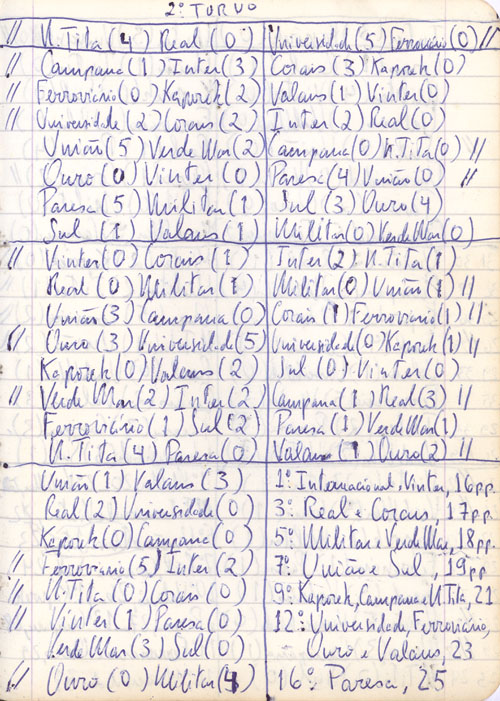 2º TURNO
// N.Tita (4) Real (0) Universidade (5) Ferroviário (0) //
// Campana (1) Inter (3) Corais (3) Kaporek (0)
// Ferroviário (0) Kaporek (2) Valaus (1) Vinter (0)
// Universidade (2) Corais (2) Inter (2) Real (0)
União (5) Verde Mar (2) Campana (0) N.Tita (0) //
Ouro (0) Vinter (0) Paresa (4) União (0) //
Paresa (5) Militar (1) Sul (3) Ouro (4)
Sul (1) Valaus (1) Militar (0) Verde Mar (0)
// Vinter (0) Corais (1) Inter (2) N.Tita (1)
Real (0) Militar (1) Militar (0) União (1) //
União (3) Campana (0) Corais (1) Ferroviario (1) //
// Ouro (3) Universidade (5) Universidade (0) Kaporek (1) //
Kaporek (0) Valaus (2) Sul (0) Vinter (0)
// Verde Mar (2) Inter (2) Campana (1) Real (3) //
Ferroviário (1) Sul (2) Paresa (1) Verde Mar (1)
N.Tita (4) Paresa (0) Valaus (1) Ouro (2) //
União (1) Valaus (3) 1º Internacional, Vinter, 16pp.
Real (2) Universidade (0) 3º Real e Corais, 17pp.
Kaporek (0) Campana (0) 5º Militar e Verde Mar, 18pp.
// Ferroviario (5) Inter (2) 7º União e Sul, 19pp
// N.Tita (0) Corais (0) 9º Kaporek, Campana e N.Tita, 21
// Vinter (1) Paresa (0) 12º Universidade, Ferroviário,
Verde Mar (3) Sul (0) Ouro e Valaus, 23
// Ouro (0) Militar (4) 16º Paresa, 25